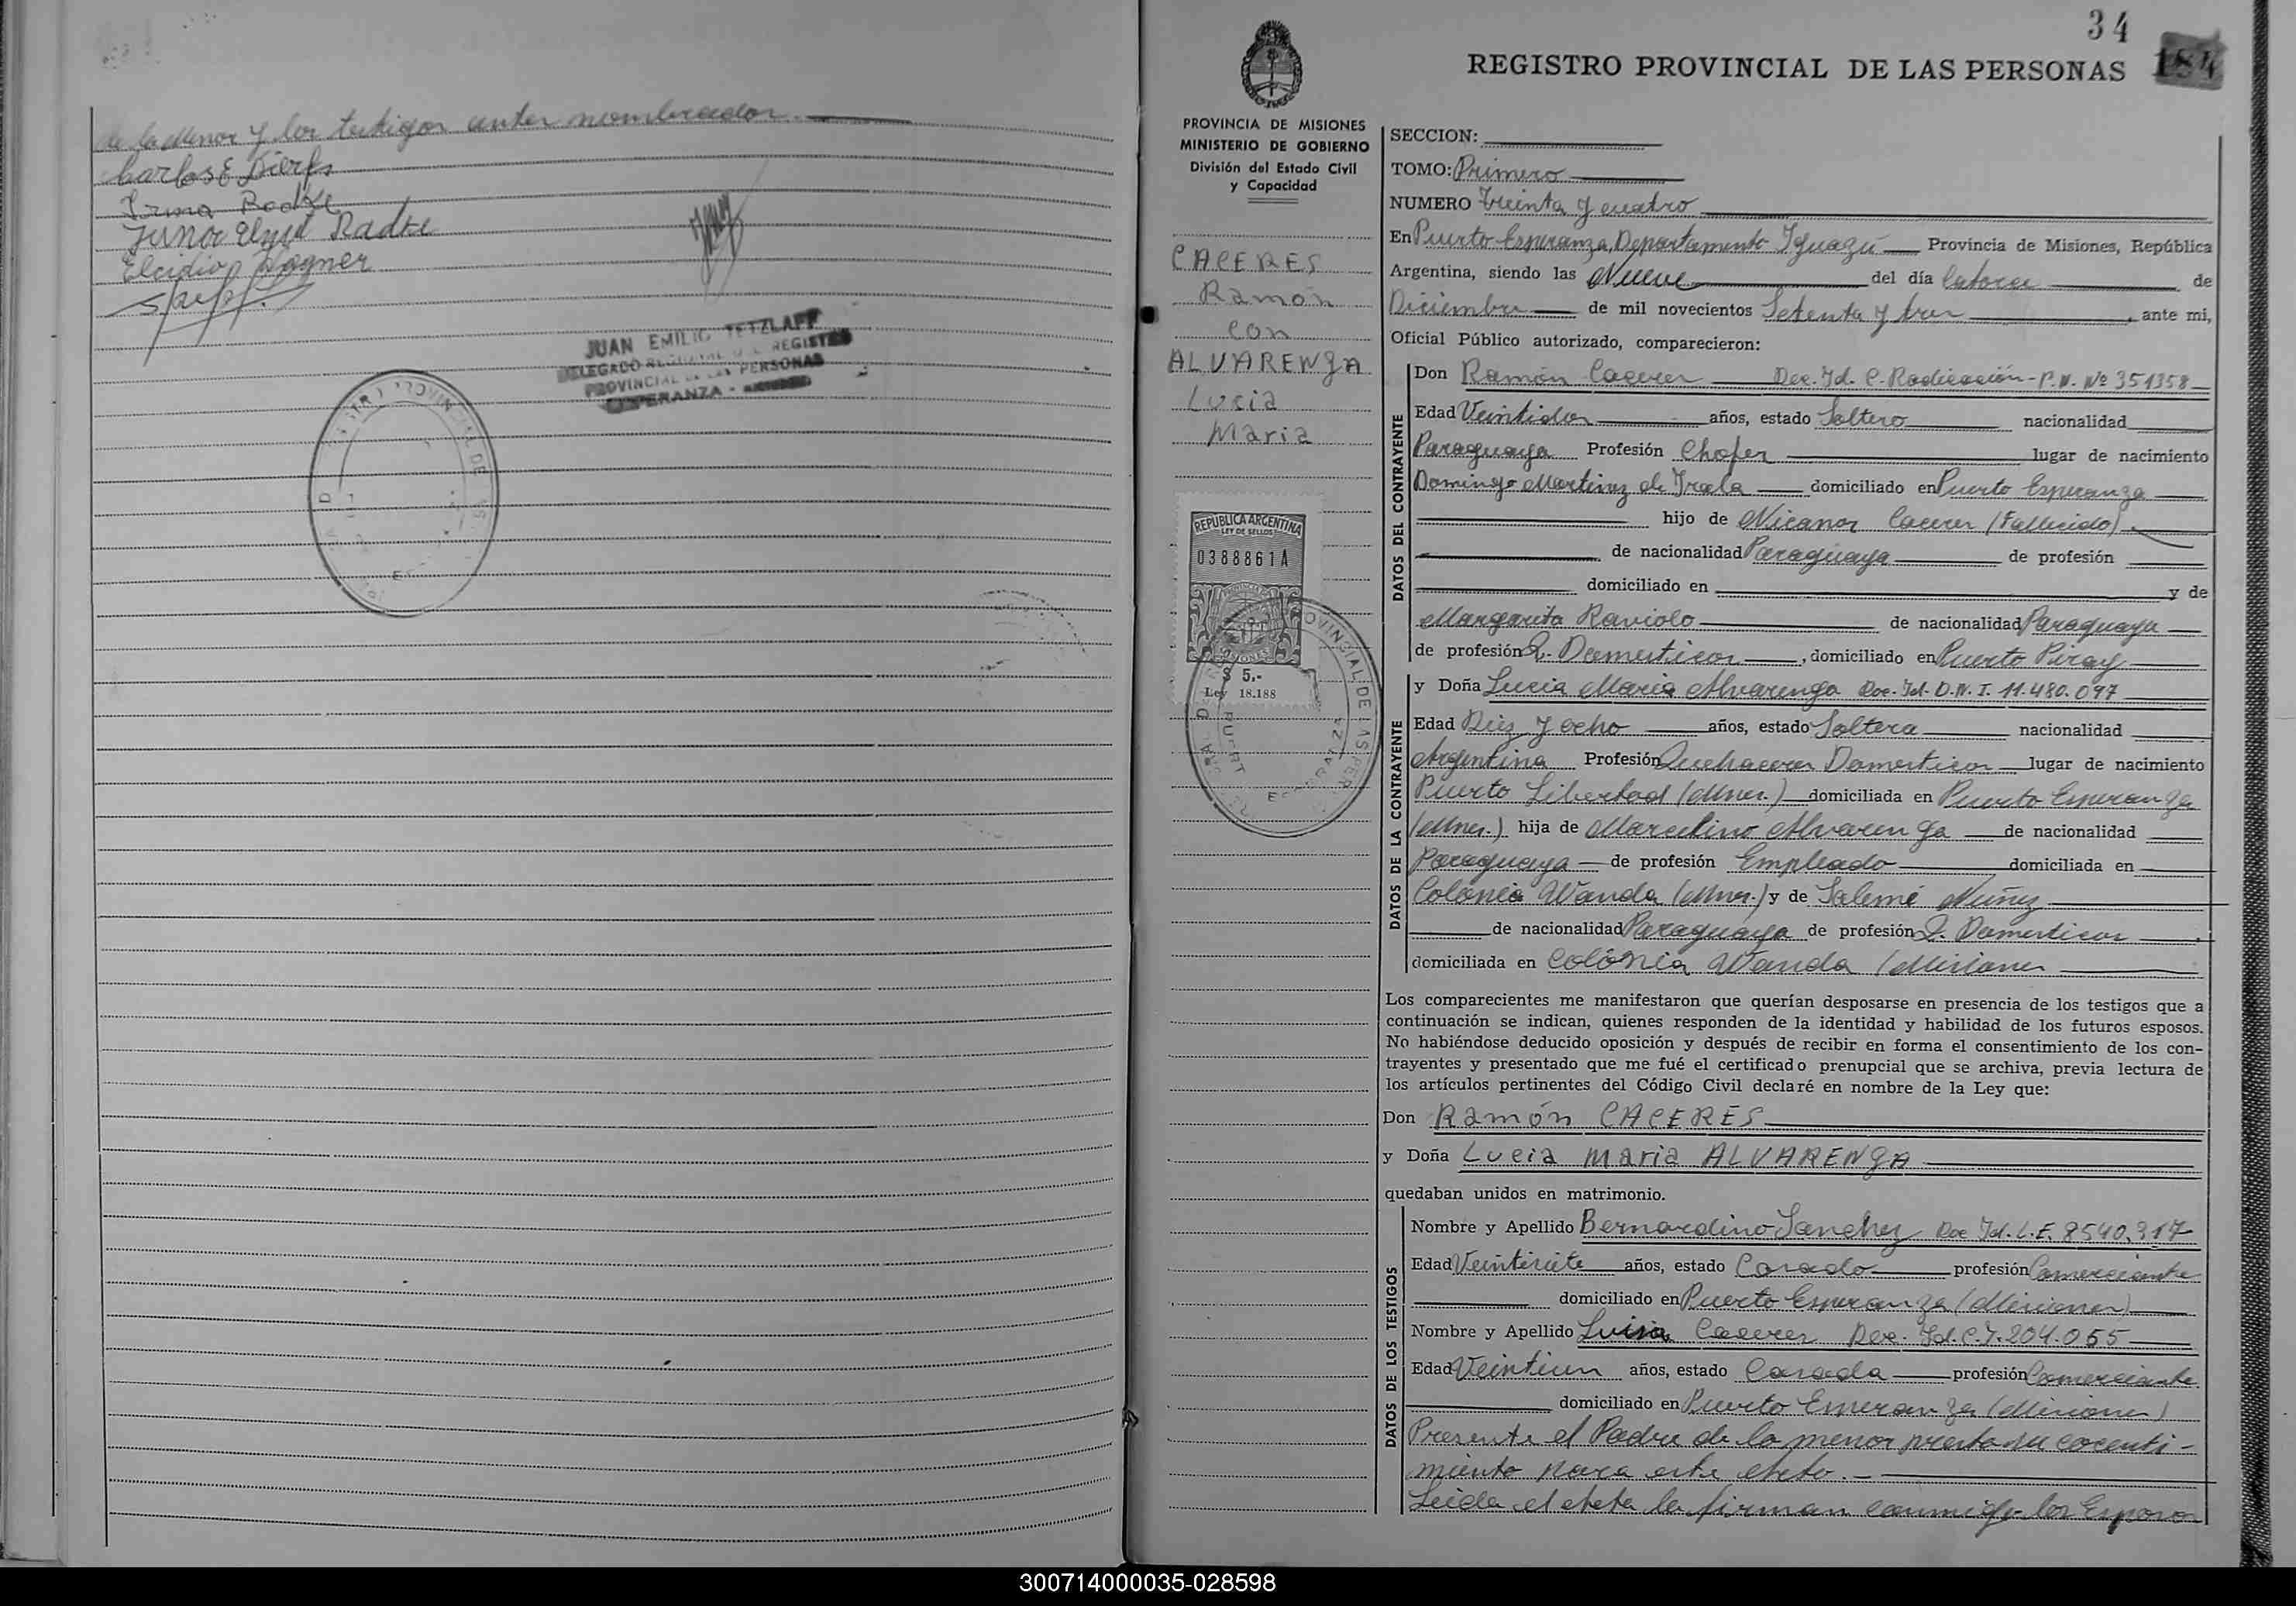 de la Menor y los testigos antes nombrados.
Carlos E Dierks
Irma Radke
Elcidio Wagner
JUAN EMILIO TETZLAFF
DELEGADO REGIONAL DEL REGISTRO
PROVINCIAL DE LAS PERSONAS
ESPERANZA -
34
REGISTRO PROVINCIAL DE LAS PERSONAS 184
PROVINCIA DE MISIONES
MINISTERIO DE GOBIERNO
División del Estado Civil
y Capacidad
CACERES
Ramón
con
ALVARENGA
Lucia
Maria
REPUBLICA ARGENTINA
LEY DE SELLOS
0388861A
MISIONES
$ 5.-
Ley 18.188
SECCION:
TOMO: Primero
NUMERO Treinta y cuatro
En Puerto Esperanza, Departamento Iguazú Provincia de Misiones, República
Argentina, siendo las Nueve del día Catorce de
Diciembre de mil novecientos Setenta y tres, ante mi,
Oficial Público autorizado, comparecieron:
DATOS DEL CONTRAYENTE
Don Ramón Caceres Doc. Id. C. Radicación - P.N. Nº 351358
Edad Veintidos años, estado Soltero nacionalidad
Paraguaya Profesión Chofer lugar de nacimiento
Domingo Martinez de Irala domiciliado en Puerto Esperanza
hijo de Nicanor Caceres (Fallecido)
de nacionalidad Paraguaya de profesión
domiciliado en y de
Margarita Raviolo de nacionalidad Paraguaya
de profesión Q. Domesticos, domiciliado en Puerto Piray
DATOS DE LA CONTRAYENTE
y Doña Lucia Maria Alvarenga Doc. Id. D.N.I. 11.480.097
Edad Diez y ocho años, estado Soltera nacionalidad
Argentina Profesión Quehaceres Domesticos lugar de nacimiento
Puerto Libertad (Mnes.) domiciliada en Puerto Esperanza
(Mnes.) hija de Marcelino Alvarenga de nacionalidad
Paraguaya de profesión Empleado domiciliada en
Colonia Wanda (Mnes.) y de Salemé Nuñez
de nacionalidad Paraguaya de profesión Q. Domesticos
domiciliada en Colónia Wanda (Misiones
Los comparecientes me manifestaron que querían desposarse en presencia de los testigos que a
continuación se indican, quienes responden de la identidad y habilidad de los futuros esposos.
No habiéndose deducido oposición y después de recibir en forma el consentimiento de los con-
trayentes y presentado que me fué el certificado prenupcial que se archiva, previa lectura de
los artículos pertinentes del Código Civil declaré en nombre de la Ley que:
Don Ramón CACERES
y Doña Lucia Maria ALVARENGA
quedaban unidos en matrimonio.
DATOS DE LOS TESTIGOS
Nombre y Apellido Bernardino Sanchez Doc Id. L.E. 8540.317
Edad Veintisiete años, estado Casado profesión Comerciante
domiciliado en Puerto Esperanza (Misiones)
Nombre y Apellido Luisa Caceres Doc. Id. C.I. 204.055
Edad Veintiun años, estado Casada profesión Comerciante
domiciliado en Puerto Esperanza (Misiones)
Presente el Padre de la menor presta su cocenti-
miento para este
Leida el la firman conmigo los Esposos
300714000035-028598